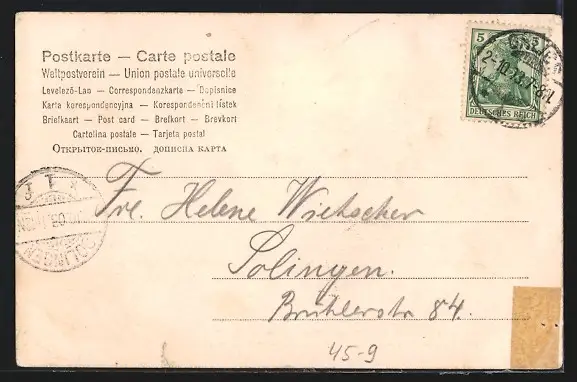 Postkarte — Carte postale
Weltpostverein — Union postale universelle
Levelező-Lap — Correspondenzkarte — Dopisnice
Karta korespondencyjna — Korespondenční lístek
Briefkaart — Post card — Brefkort — Brevkort
Cartolina postale — Tarjeta postal
Открытое письмо. дописна карта
5
DEUTSCHES REICH
SOLINGEN
Frl. Helene Wietscher
Solingen.
Brühlerstr 84.
45-9